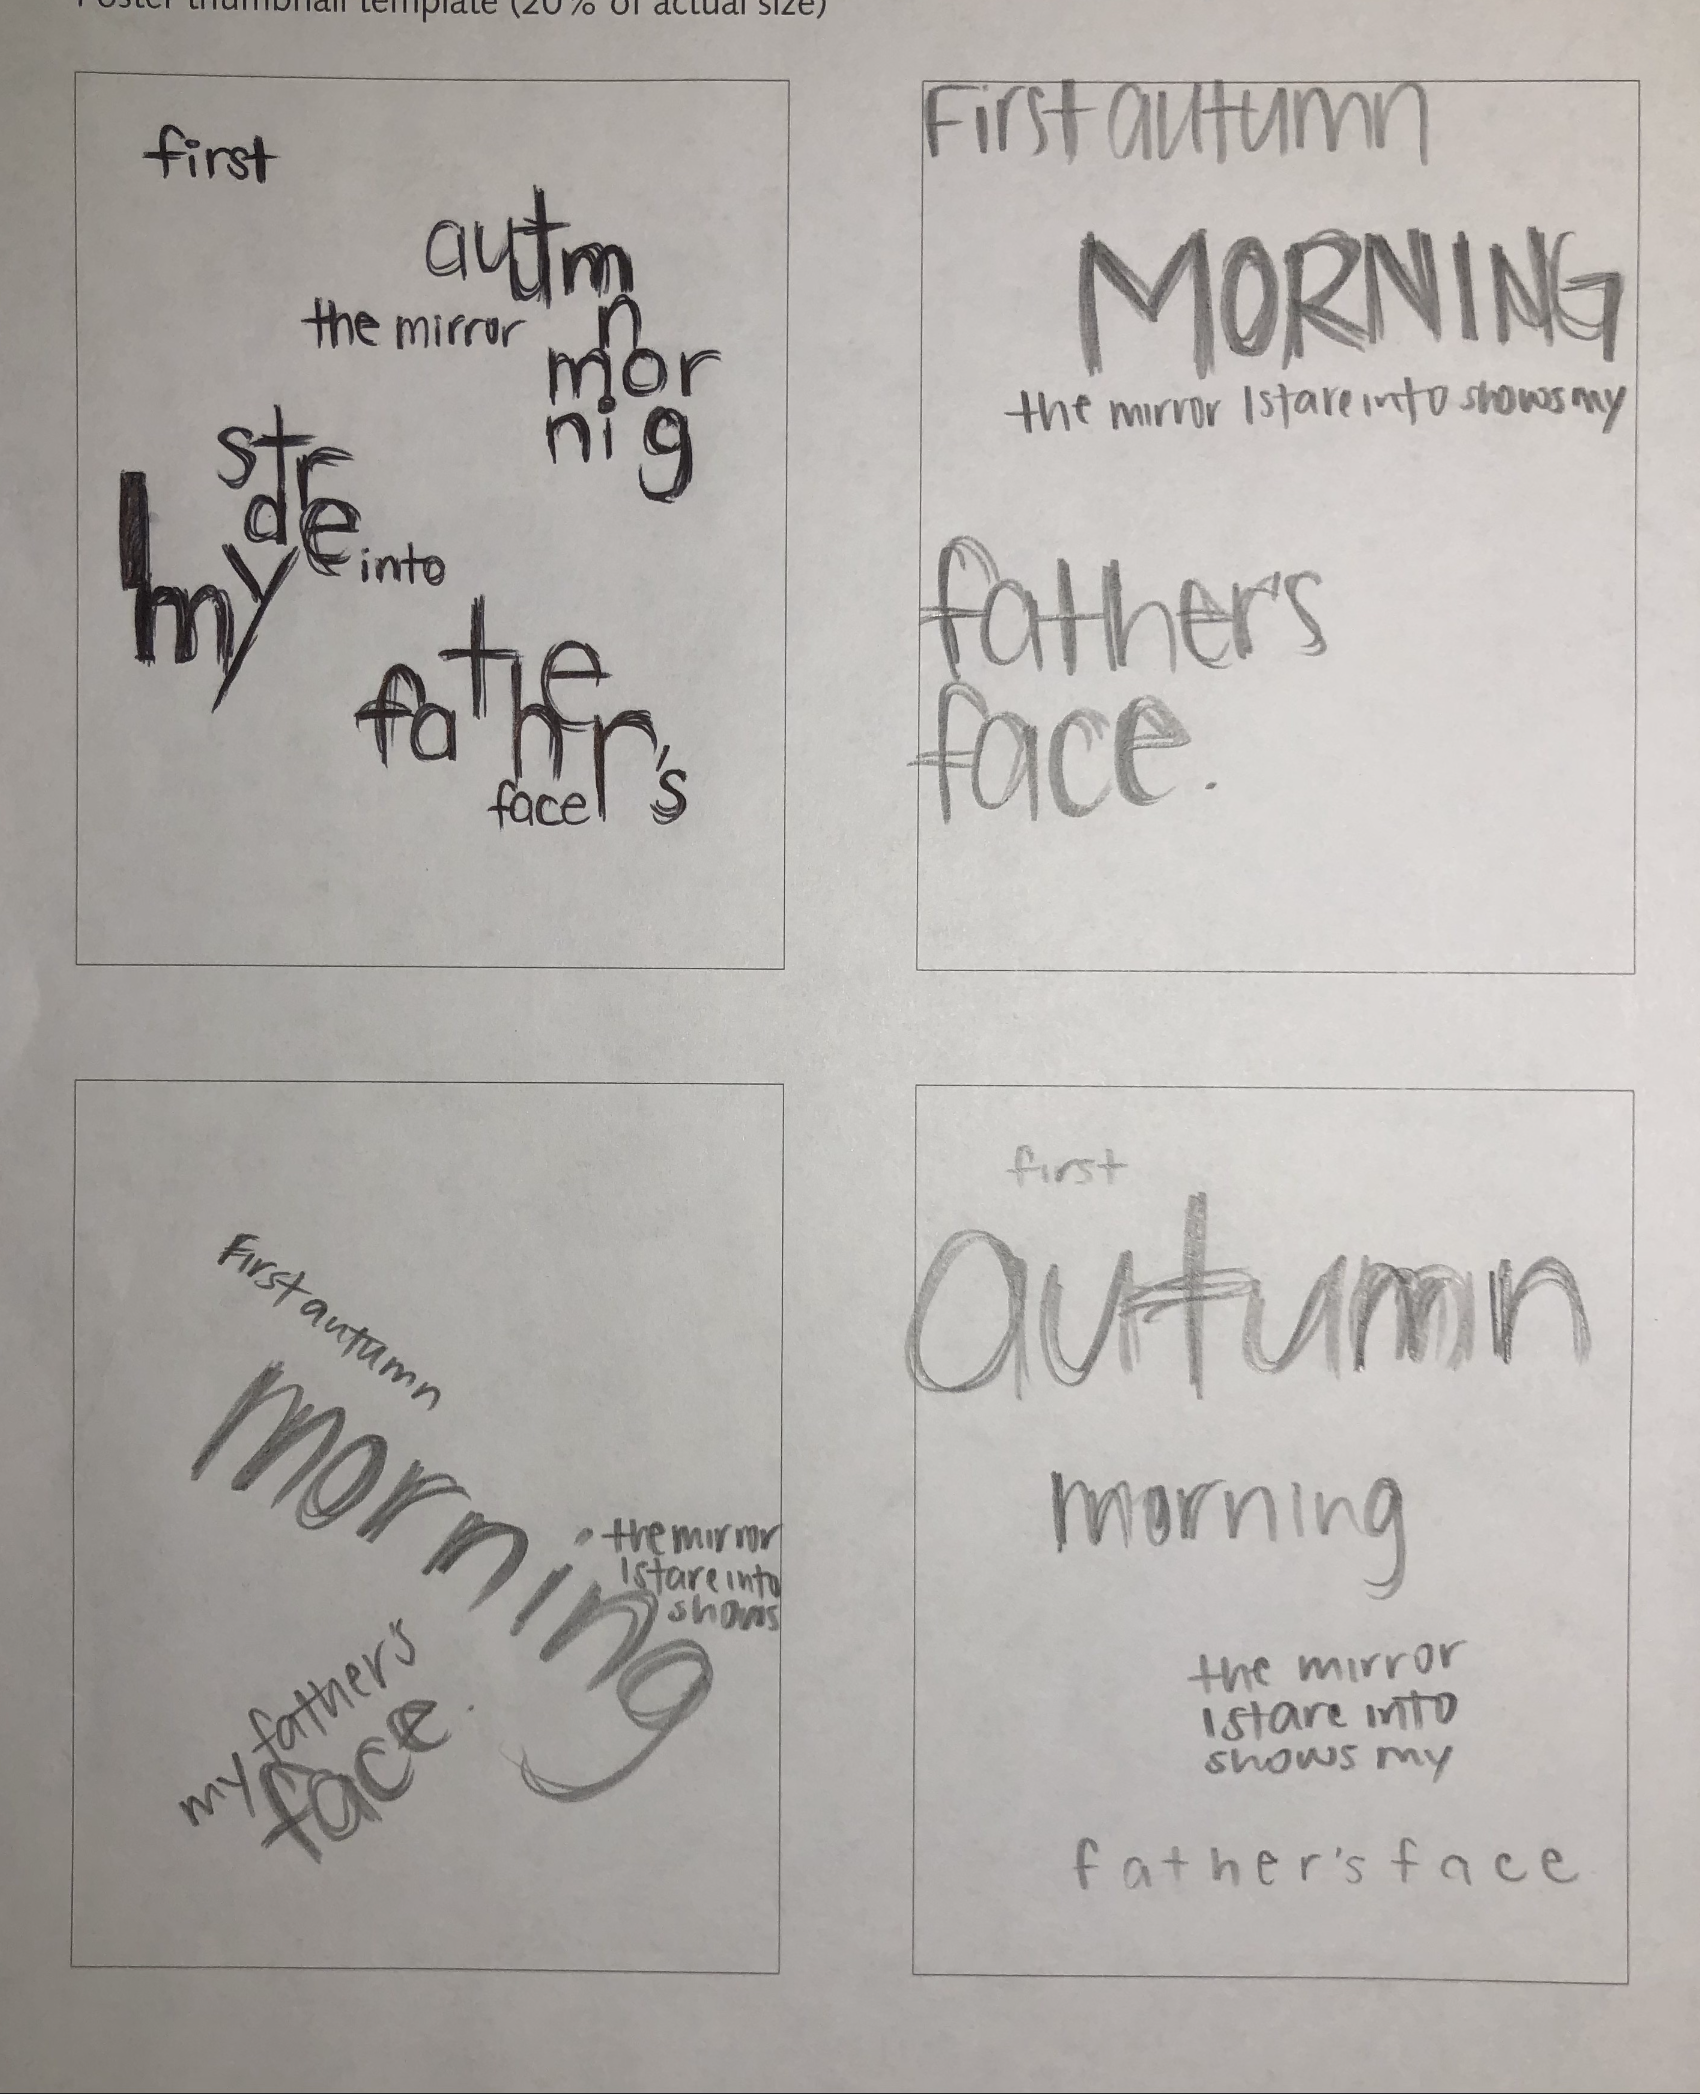 Poster thumbnail template (20% of actual size)
first
autm
n
the mirror
mor
nig
str
are
I
my
into
father's
face
First autumn
MORNING
the mirror I stare into shows my
father's
face.
First autumn
morning
the mirror
I stare into
shows
my father's
face.
first
autumn
morning
the mirror
I stare into
shows my
father's face